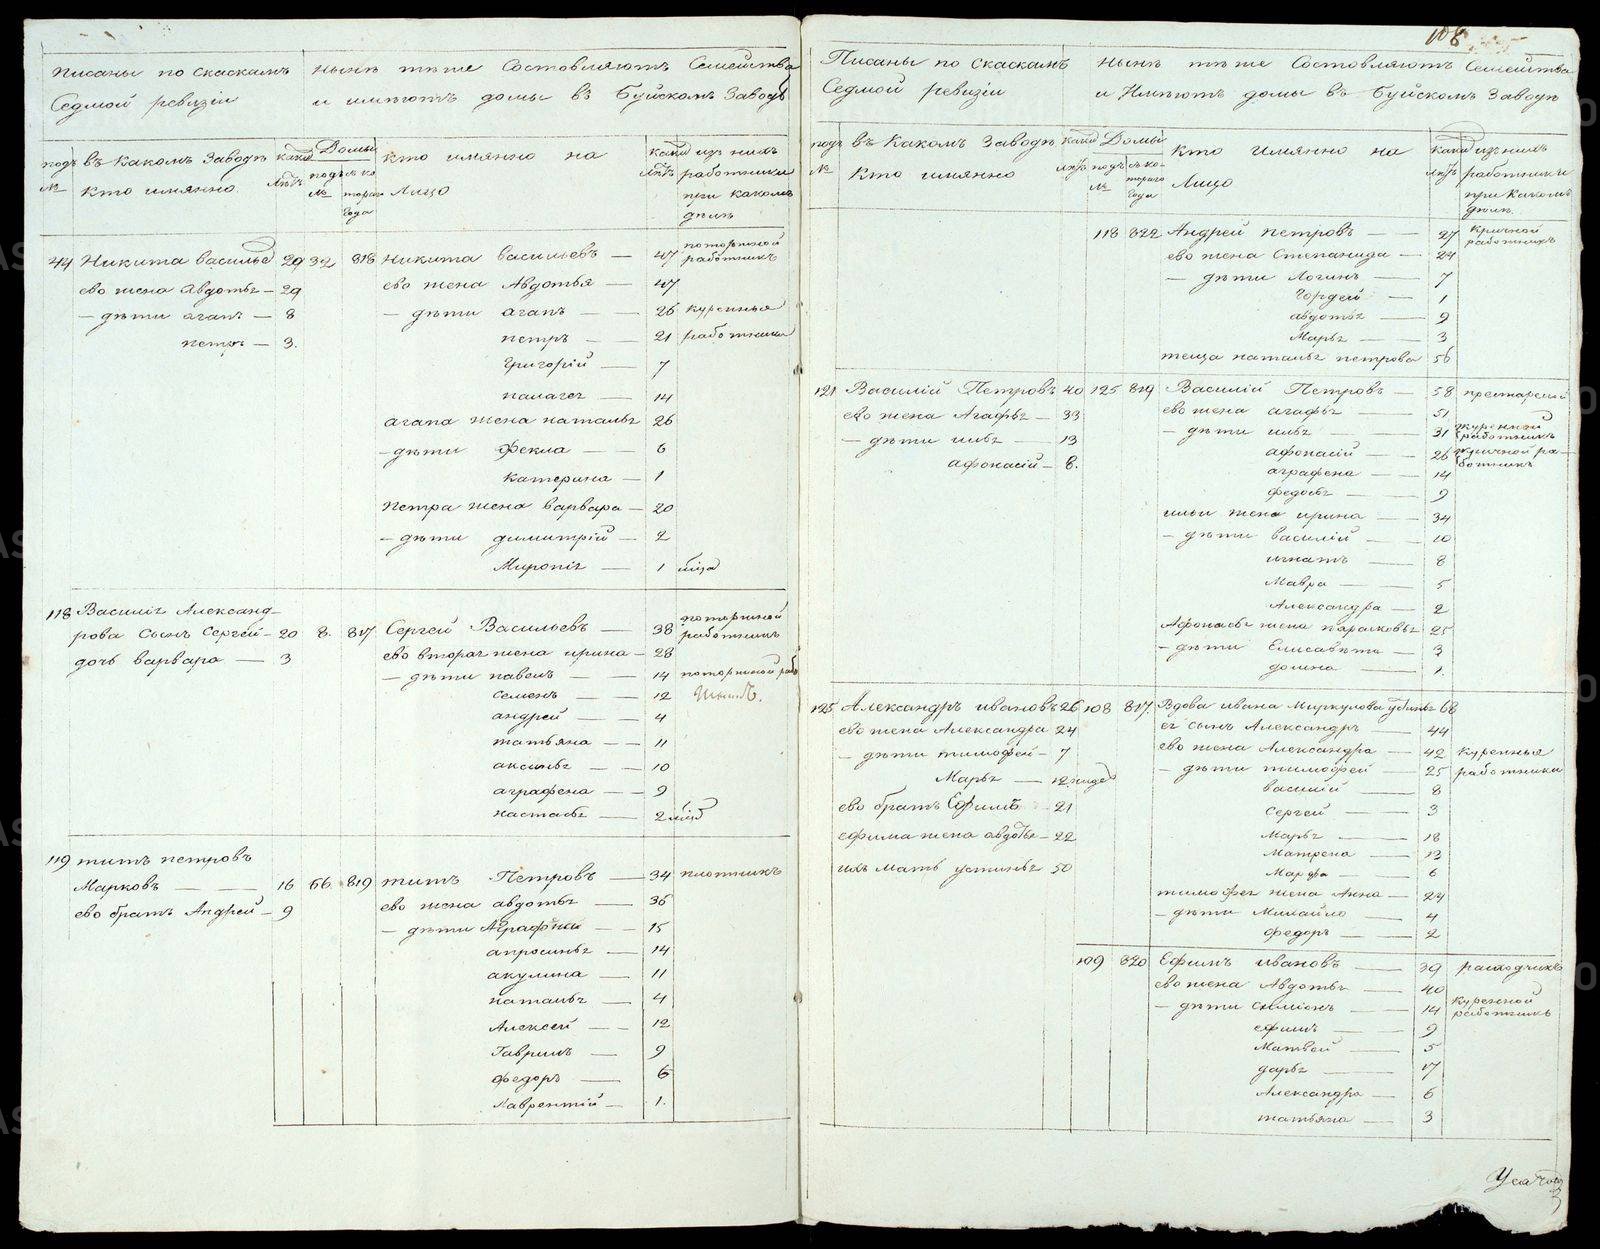 Писаны по скаскамъ
Седмой ревизіи
нынѣ тѣ же Составляютъ Семейства
и имѣютъ домы въ Буйскомъ Заводѣ
подъ №
въ Какомъ Заводѣ
кто имянно
Домы
подъ №
съ котораго года
кто имянно на
Лицо
изъ нихъ
работники
при какомъ
дѣлѣ
44 Никита василье 29 32 818 никита васильевъ — 47 работникъ
ево жена Авдотья — 29 ево жена Авдотья — 47
— дѣти агапъ — 8 — дѣти агапъ — 26 куренные
петръ — 3. петръ — 21 работники
григорій — 7
палагея — 14
агапа жена наталья 26
— дѣти Фекла — 6
Катерина — 1
петра жена варвара — 20
— дѣти димитрій — 2
1
118 Василія Александ-
рова сынъ Сергей — 20 8. 817 Сергей Васильевъ — 38 работникъ
дочь варвара — 3 ево вторая жена ирина — 28
— дѣти павелъ — 14
семенъ — 12
андрей — 4
татьяна — 11
аксинья — 10
аграфена — 9
настасья — 2
119 титъ петровъ
Марковъ — 16 66 819 титъ Петровъ — 34 плотникъ
ево братъ Андрей — 9 ево жена авдотья — 36
— дѣти — 15
апросинья — 14
акулина — 11
наталья — 4
Алексей — 12
Гаврилъ — 9
федоръ — 6
Лаврентій — 1.
108
Писаны по скаскамъ
Седмой ревизіи
нынѣ тѣ же Составляютъ Семейства
и Имѣютъ домы въ Буйскомъ Заводѣ
подъ №
въ Какомъ Заводѣ
кто имянно
Домы
подъ №
съ котораго года
кто имянно на
Лицо
изъ нихъ
работники
при какомъ
дѣлѣ
118 822 Андрей петровъ — 27 кричной
работникъ
ево жена Степанида — 24
— дѣти Логинъ — 7
Гордей — 1
авдотья — 9
Марья — 3
теща наталья петрова 56
121 Василій Петровъ 40 125 819 Василій Петровъ — 58 престарелой
ево жена Агафья — 33 ево жена агафья — 51
— дѣти илья — 13 — дѣти илья — 31 куренной
работникъ
афонасій — 8. афонасій — 26 кричной ра-
ботникъ
аграфена — 14
федосья — 9
ильи жена ирина — 34
— дѣти василій — 10
игнатъ — 8
Мавра — 5
Александра — 2
Афонасья жена парасковья 25
— дѣти Елисавета — 3
домна — 1.
125 Александръ ивановъ 26 108 817. Вдова ивана Меркулова устинья 68
ево жена Александра 24 ея сынъ Александръ — 44
— дѣти тимофей — 7 ево жена Александра — 42 куренныя
Марья — 12 — дѣти тимофей — 25 работники
василій — 8
ево братъ Ефимъ — 21 Сергей — 3
ефима жена авдотья — 22 Марья — 18
Матрена — 13
ихъ мать устинья 50 Марфа — 6
тимофея жена Анна — 24
— дѣти Михайло — 4
федоръ — 2
109 820 Ефимъ ивановъ — 39 расходчикъ
ево жена Авдотья — 40
— дѣти — 14 куренной
работникъ
ефимъ — 9
Матвей — 5
дарья — 17
Александра — 6
татьяна — 3